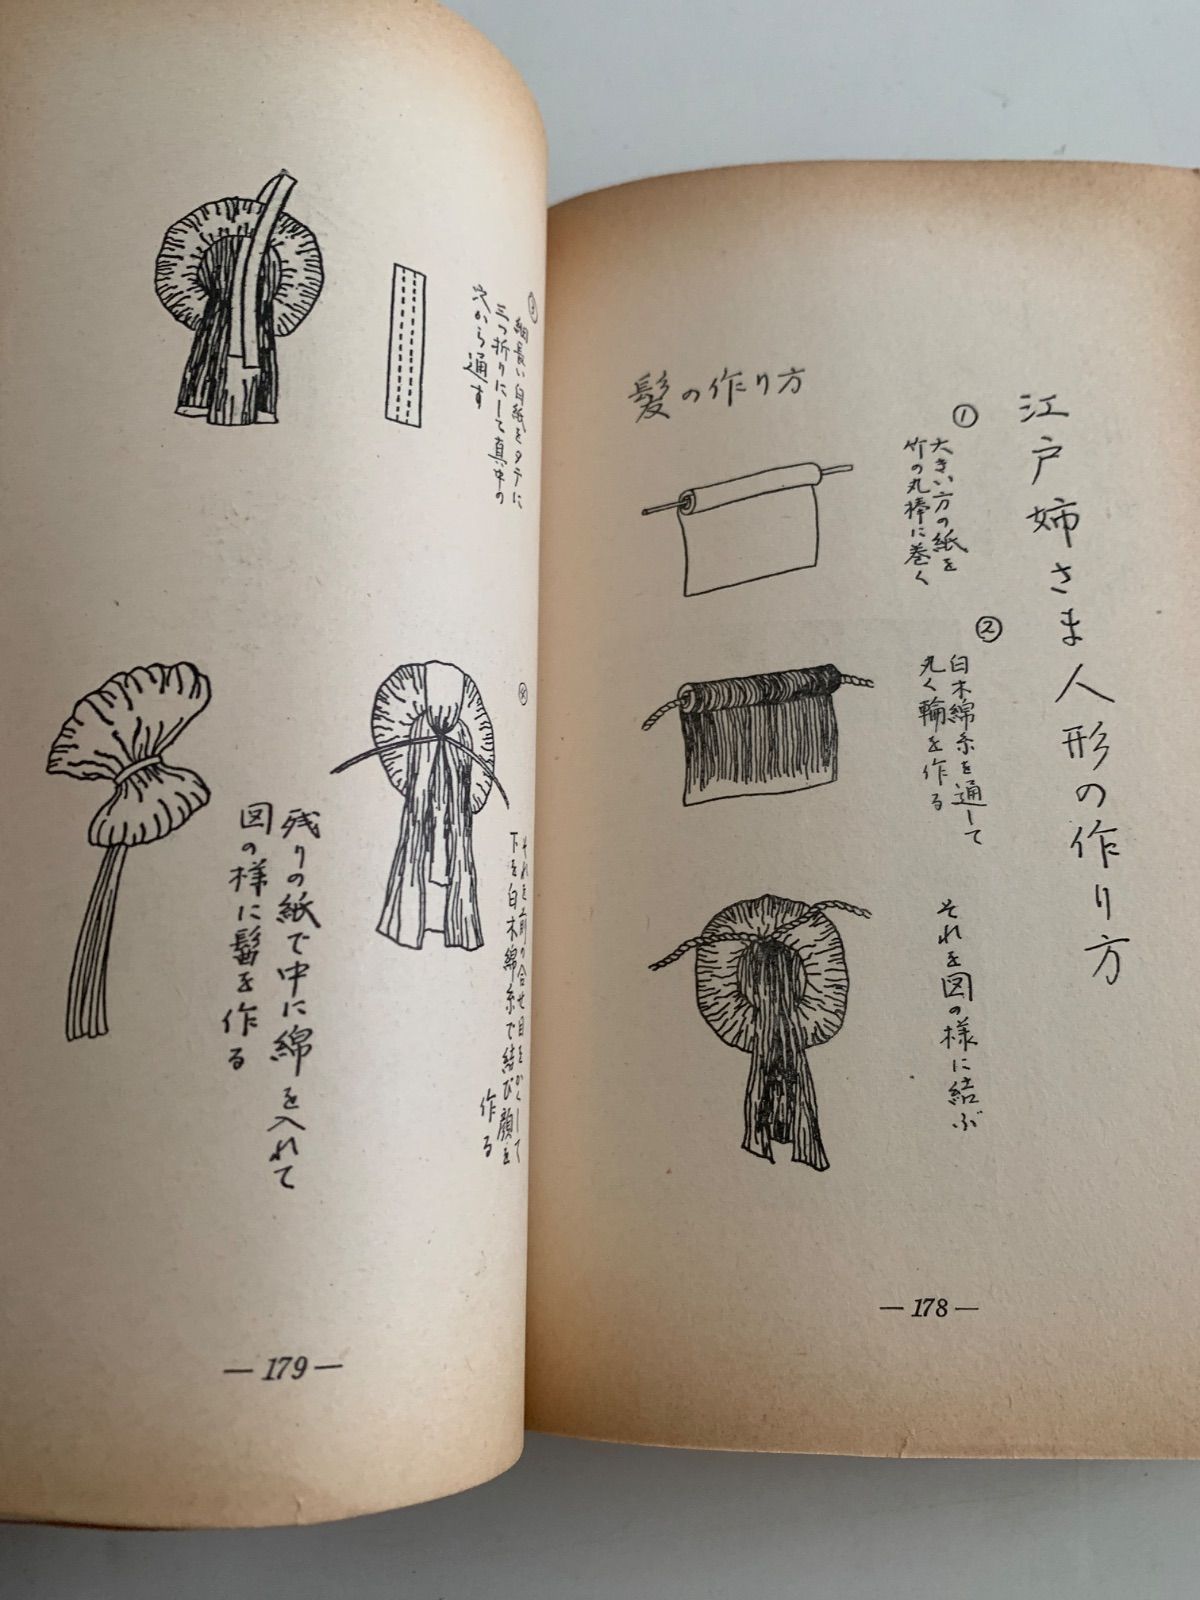 江戸姉さま人形の作り方
髪の作り方
①
大きい方の紙を
竹の丸棒に巻く
②
白木綿糸を通して
丸く輪を作る
それを図の様に結ぶ
—178—
③
細長い白紙をタテに
三つ折りにして真中の
穴から通す
それを前の合せ目をかくして
下を白木綿糸で結び顔を
作る
残りの紙で中に綿を入れて
図の様に髷を作る
—179—